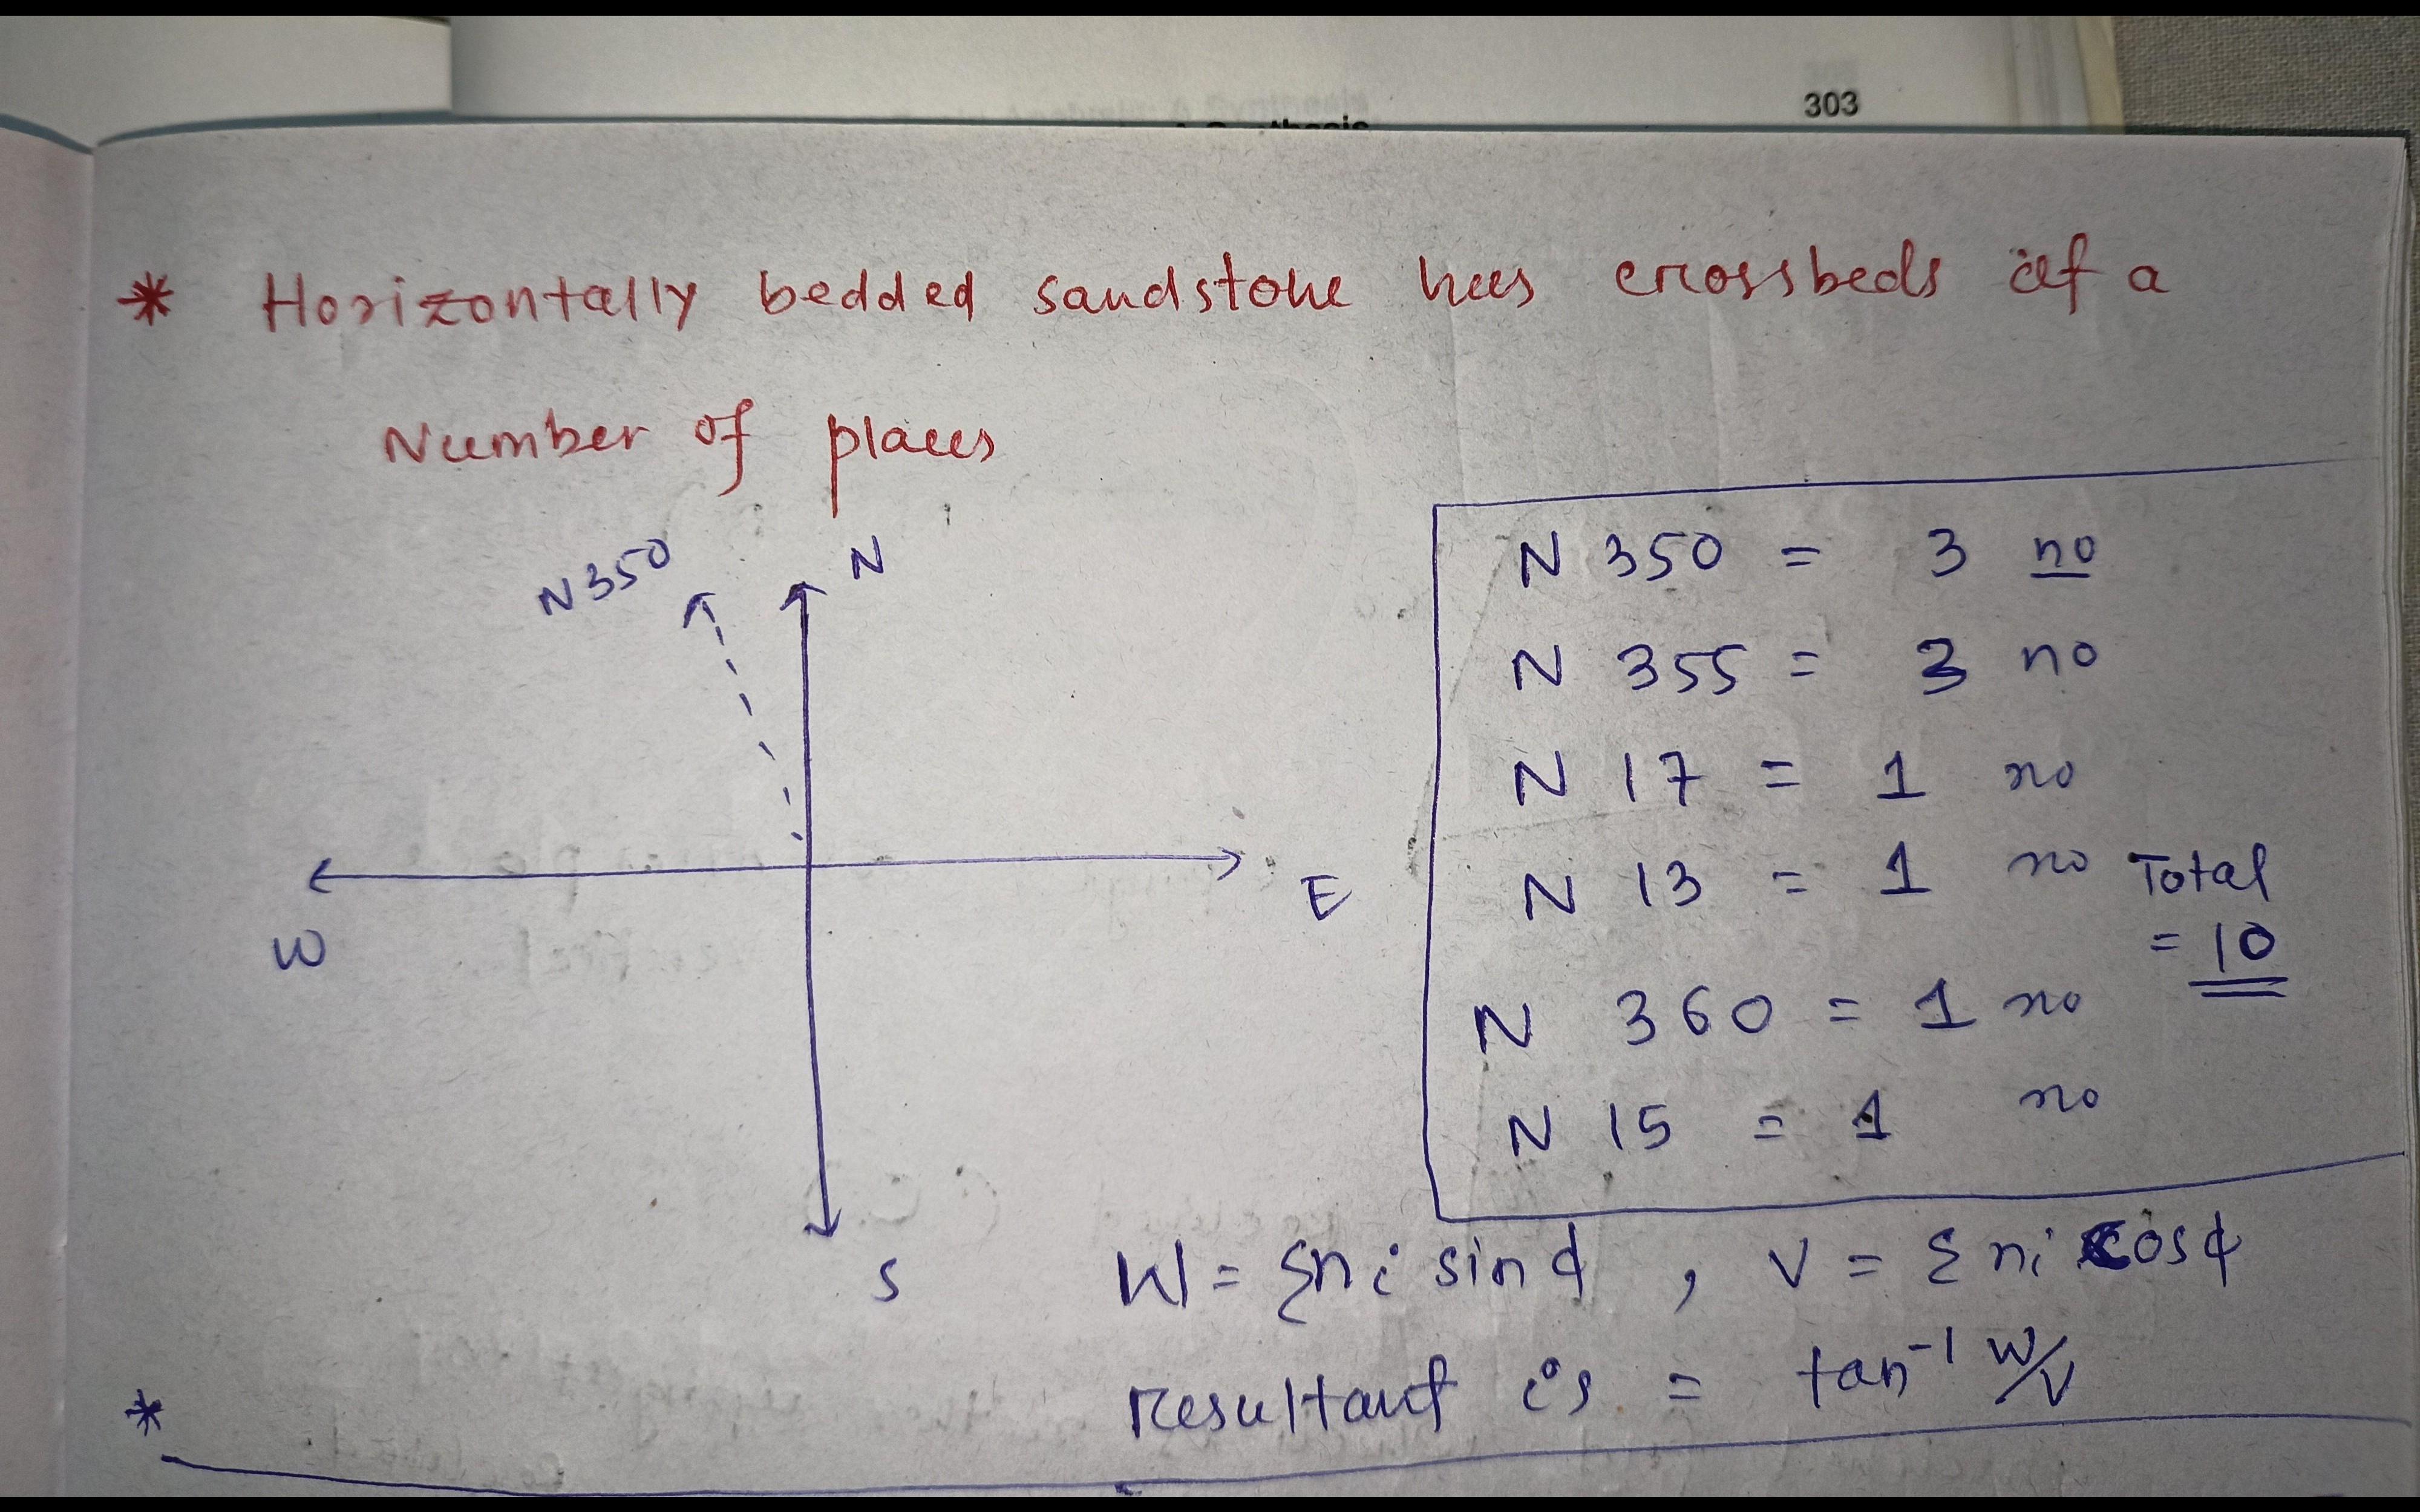 303
* Horizontally bedded sandstone has crossbeds at a
Number of places
N350
N
W
E
S
N 350 = 3 no
N 355 = 3 no
N 17 = 1 no
N 13 = 1 no
Total
= 10
N 360 = 1 no
N 15 = 1 no
W = Σni sin ϕ , V = Σ ni cosϕ
resultant is = tan⁻¹ W/V
*